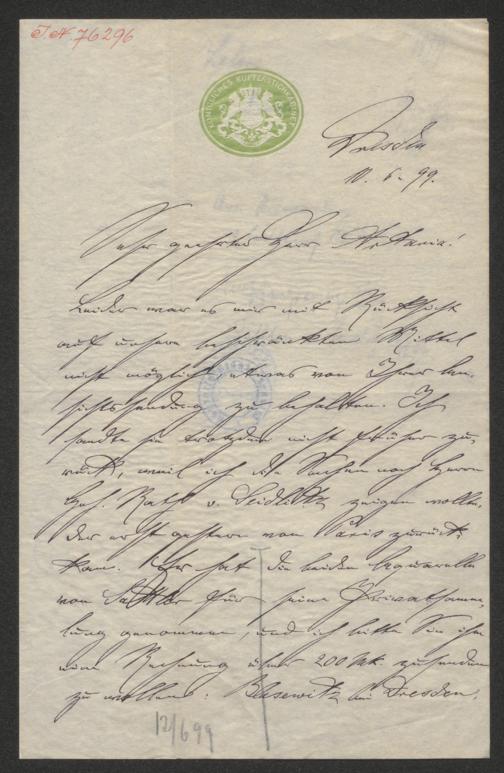 J. N. 76296
KÖNIGLICHES KUPFERSTICHKABINET
Dresden
10. 6. 99.
Sehr geehrter Herr Artaria!
Leider war es mir mit Rücksicht
auf unsere beschränkten Mittel
nicht möglich, etwas von Ihrer An-
sichtssendung zu behalten. Ich
sandte sie trotzdem nicht früher zu-
rück, weil ich die Sachen noch Herrn
Geh. Rath v. Seidlitz zeigen wollte,
der erst gestern von Paris zurück-
kam. Er hat die beiden Aquarelle
von Sattler für seine Privatsamm-
lung genommen, und ich bitte Sie ihm
eine Rechnung über 200 Mk. zusenden
zu wollen: Blasewitz bei Dresden,
12/6 99